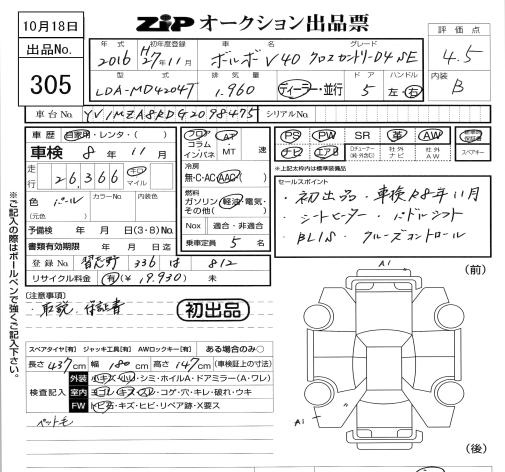 10月18日
ZIP オークション出品票
出品No.
305
年式 初年度登録 車名 グレード 評価点
2016 H27年11月 ボルボ V40 クロスカントリーD4 SE 4.5
型式 排気量 ドア ハンドル 内装
LDA-MD4204T 1.960 ディーラー・並行 5 左・右 B
車台No. YV1MZA8RDG2098475 シリアルNo.
車歴 自家用・レンタ・( ) フロア コラム インパネ AT・MT 速
PS PW SR 革 AW 標準車 保証書
ナビ エアB Dチューナー(純・外含む) 社外ナビ 社外AW スペアキー
*上記太枠内は標準装備品
車検 8年11月 冷房
走行 26,366 キロ マイル 無・C・AC・AAC
燃料
色 パール カラーNo. 内装色 ガソリン・軽油・電気・
(元色 ) その他( )
予備検 年 月 日(3・8)No. Nox 適合・非適合
書類有効期限 年 月 日迄 乗車定員 5 名
登録No. 習志野 336 は 812
リサイクル料金 有(¥ 9,930) 未
セールスポイント
・初出品・車検R8年11月
・シートヒーター・パドルシフト
・BLIS・クルーズコントロール
※ご記入の際はボールペンで強くご記入下さい。
(注意事項)
・取説・保証書
初出品
スペアタイヤ[有] ジャッキ工具[有] AWロックキー[有] ある場合のみ○
長さ 437cm 幅 180cm 高さ 147cm (車検証上の寸法)
検査記入
外装 小キズ・小凹・シミ・ホイルA・ドアミラー(A・ワレ)
室内 ヨゴレ・キズ・スレ・コゲ・穴・キレ・破れ・ウキ
FW トビ石・キズ・ヒビ・リペア跡・X要ス
ペット毛
A1
(前)
A1
(後)